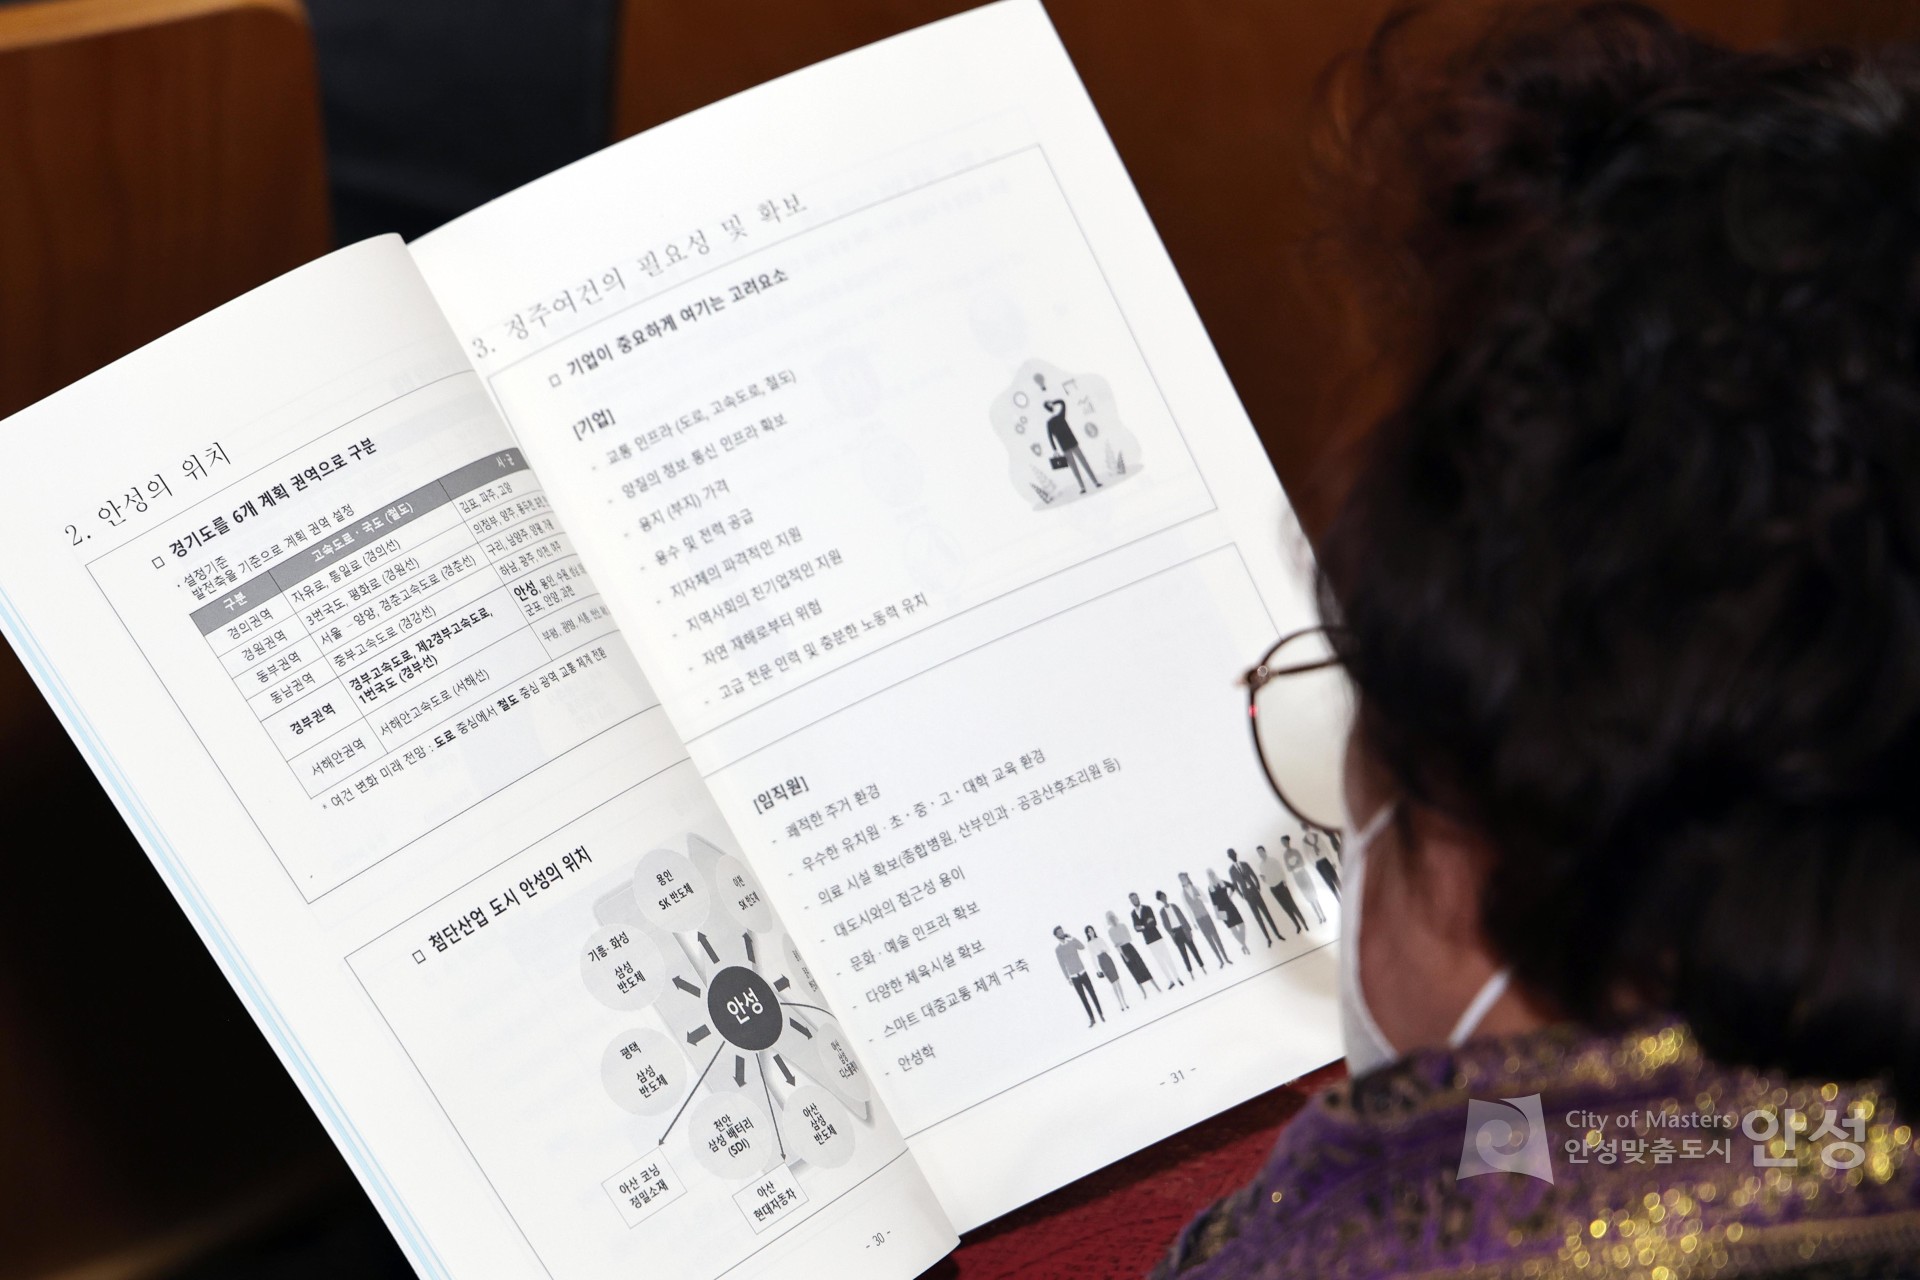 2. 안성의 위치
□ 경기도를 6개 계획 권역으로 구분
· 설정기준
발전축을 기준으로 계획 권역 설정
구분 고속도로 · 국도 (철도) 시·군
경의권역 자유로, 통일로 (경의선) 김포, 파주, 고양
경원권역 3번국도, 평화로 (경원선) 의정부, 양주, 동두천,
동부권역 서울 - 양양, 경춘고속도로 (경춘선) 구리, 남양주,
동남권역 중부고속도로 (경강선) 하남, 광주, 이천, 여주
경부권역 경부고속도로, 제2경부고속도로, 안성, 용인, 수원,
1번국도 (경부선) 군포, 안양, 과천
서해안권역 서해안고속도로 (서해선)
* 여건 변화 미래 전망 : 도로 중심에서 철도 중심 광역 교통 체계 전환
□ 첨단산업 도시 안성의 위치
용인
SK 반도체
이천
SK 반도체
기흥· 화성
삼성
반도체
안성
평택
삼성
반도체
천안
삼성 배터리
(SDI)
아산
삼성
반도체
아산
삼성
디스플레이
아산 코닝
정밀소재
아산
현대자동차
- 30 -
3. 정주여건의 필요성 및 확보
□ 기업이 중요하게 여기는 고려요소
[기업]
- 교통 인프라 (도로, 고속도로, 철도)
- 양질의 정보 통신 인프라 확보
- 용지 (부지) 가격
- 용수 및 전력 공급
- 지자체의 파격적인 지원
- 지역사회의 친기업적인 지원
- 자연 재해로부터 위험
- 고급 전문 인력 및 충분한 노동력 유치
[임직원]
- 쾌적한 주거 환경
- 우수한 유치원 · 초 · 중 · 고 · 대학 교육 환경
- 의료 시설 확보(종합병원, 산부인과 · 공공산후조리원 등)
- 대도시와의 접근성 용이
- 문화 · 예술 인프라 확보
- 다양한 체육시설 확보
- 스마트 대중교통 체계 구축
- 안성학
- 31 -
City of Masters
안성맞춤도시 안성